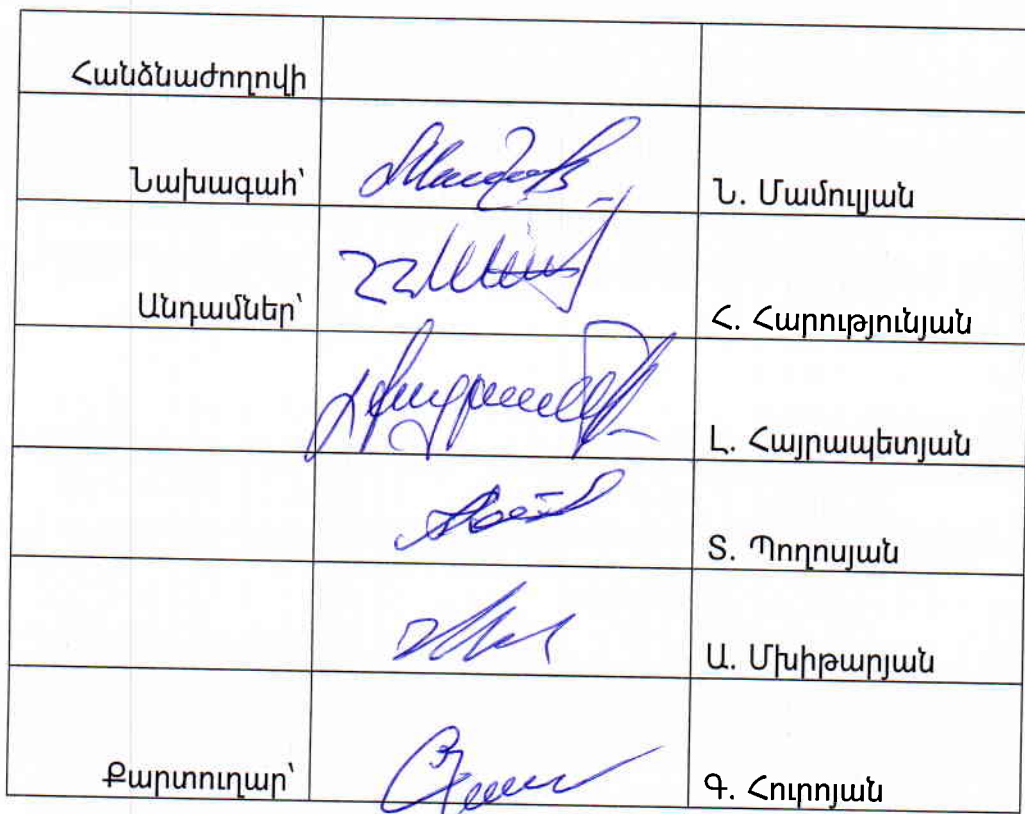 Հանձնաժողովի
Նախագահ՝ Ն. Մամուլյան
Անդամներ՝ Հ. Հարությունյան
Լ. Հայրապետյան
Տ. Պողոսյան
Ա. Մխիթարյան
Քարտուղար՝ Գ. Հուրոյան